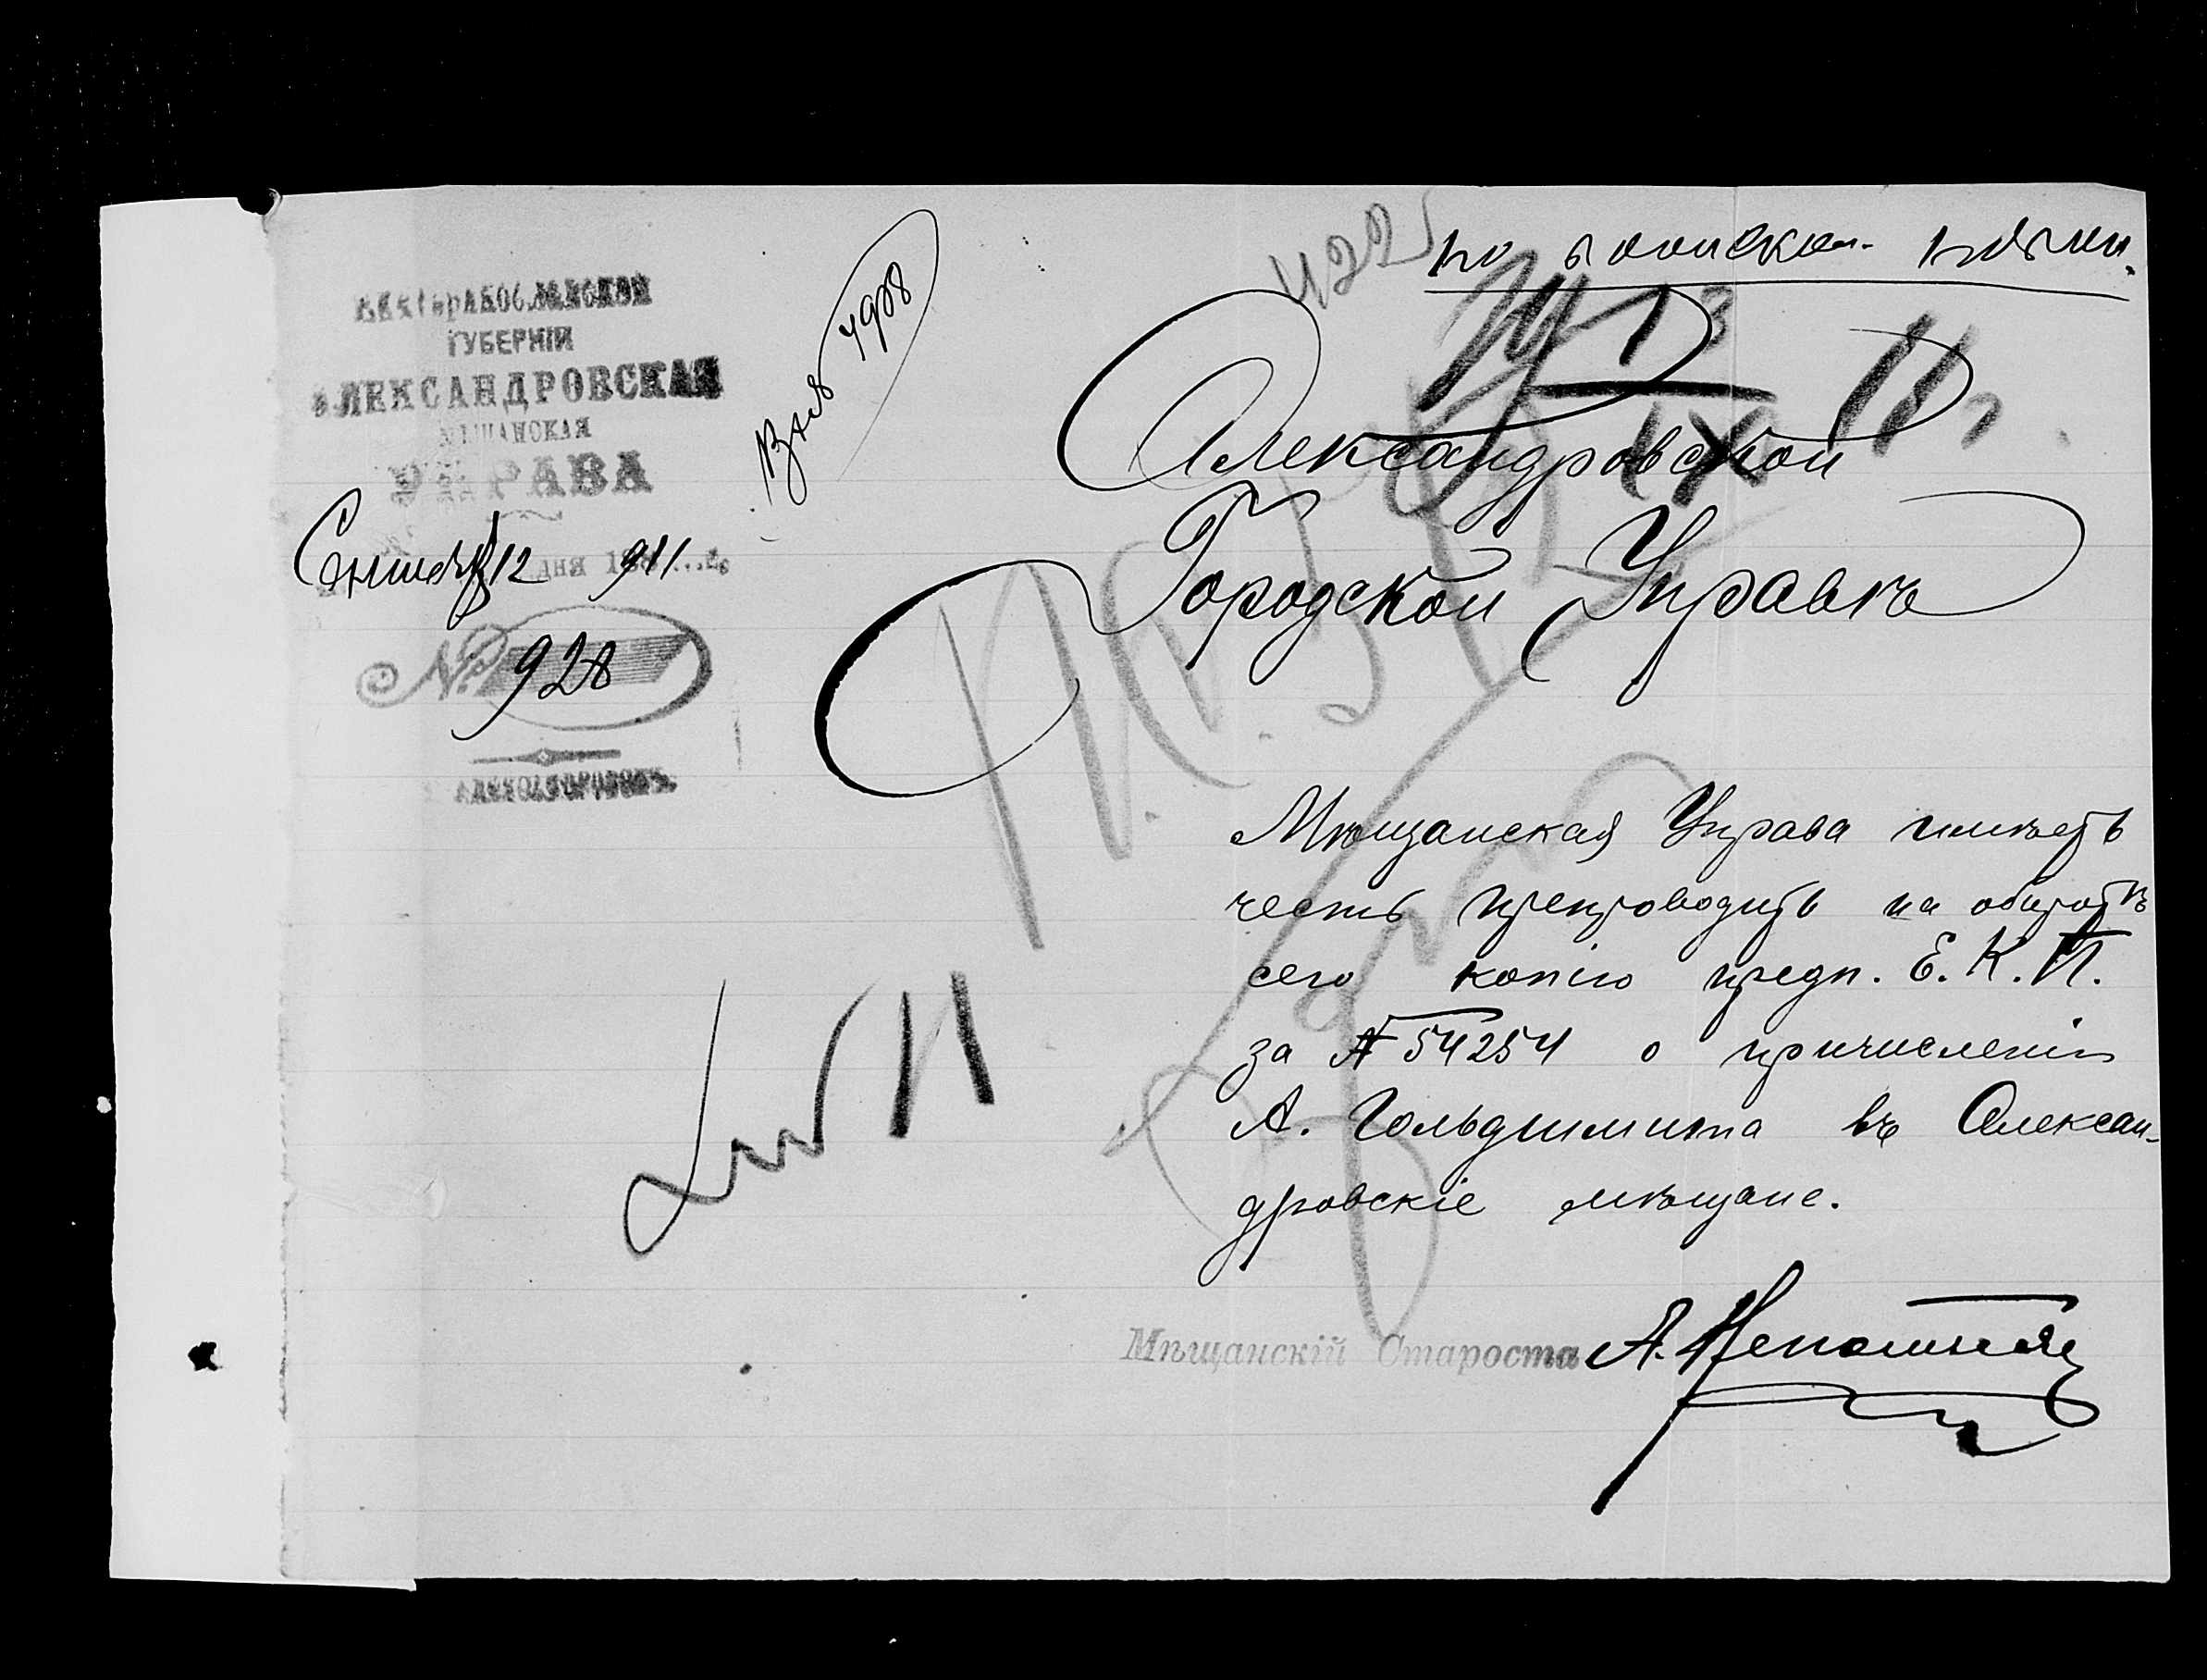 ЕКАТЕРИНОСЛАВСКОЙ
ГУБЕРНІИ
АЛЕКСАНДРОВСКАЯ
МѢЩАНСКАЯ
УПРАВА
Сентября 12 дня 911 г.
№ 928
АЛЕКСАНДРОВСКЪ.
4225
по воинском.
13
IX 11 г.
Александровской
Городской Управѣ
Мѣщанская Управа имѣетъ
честь препроводить на оборотѣ
сего копію предп. Е. К. П.
за № 54254 о причисленіи
А. Гольдшмита въ Алексан-
дровскіе мѣщане.
Мѣщанскій Староста А.